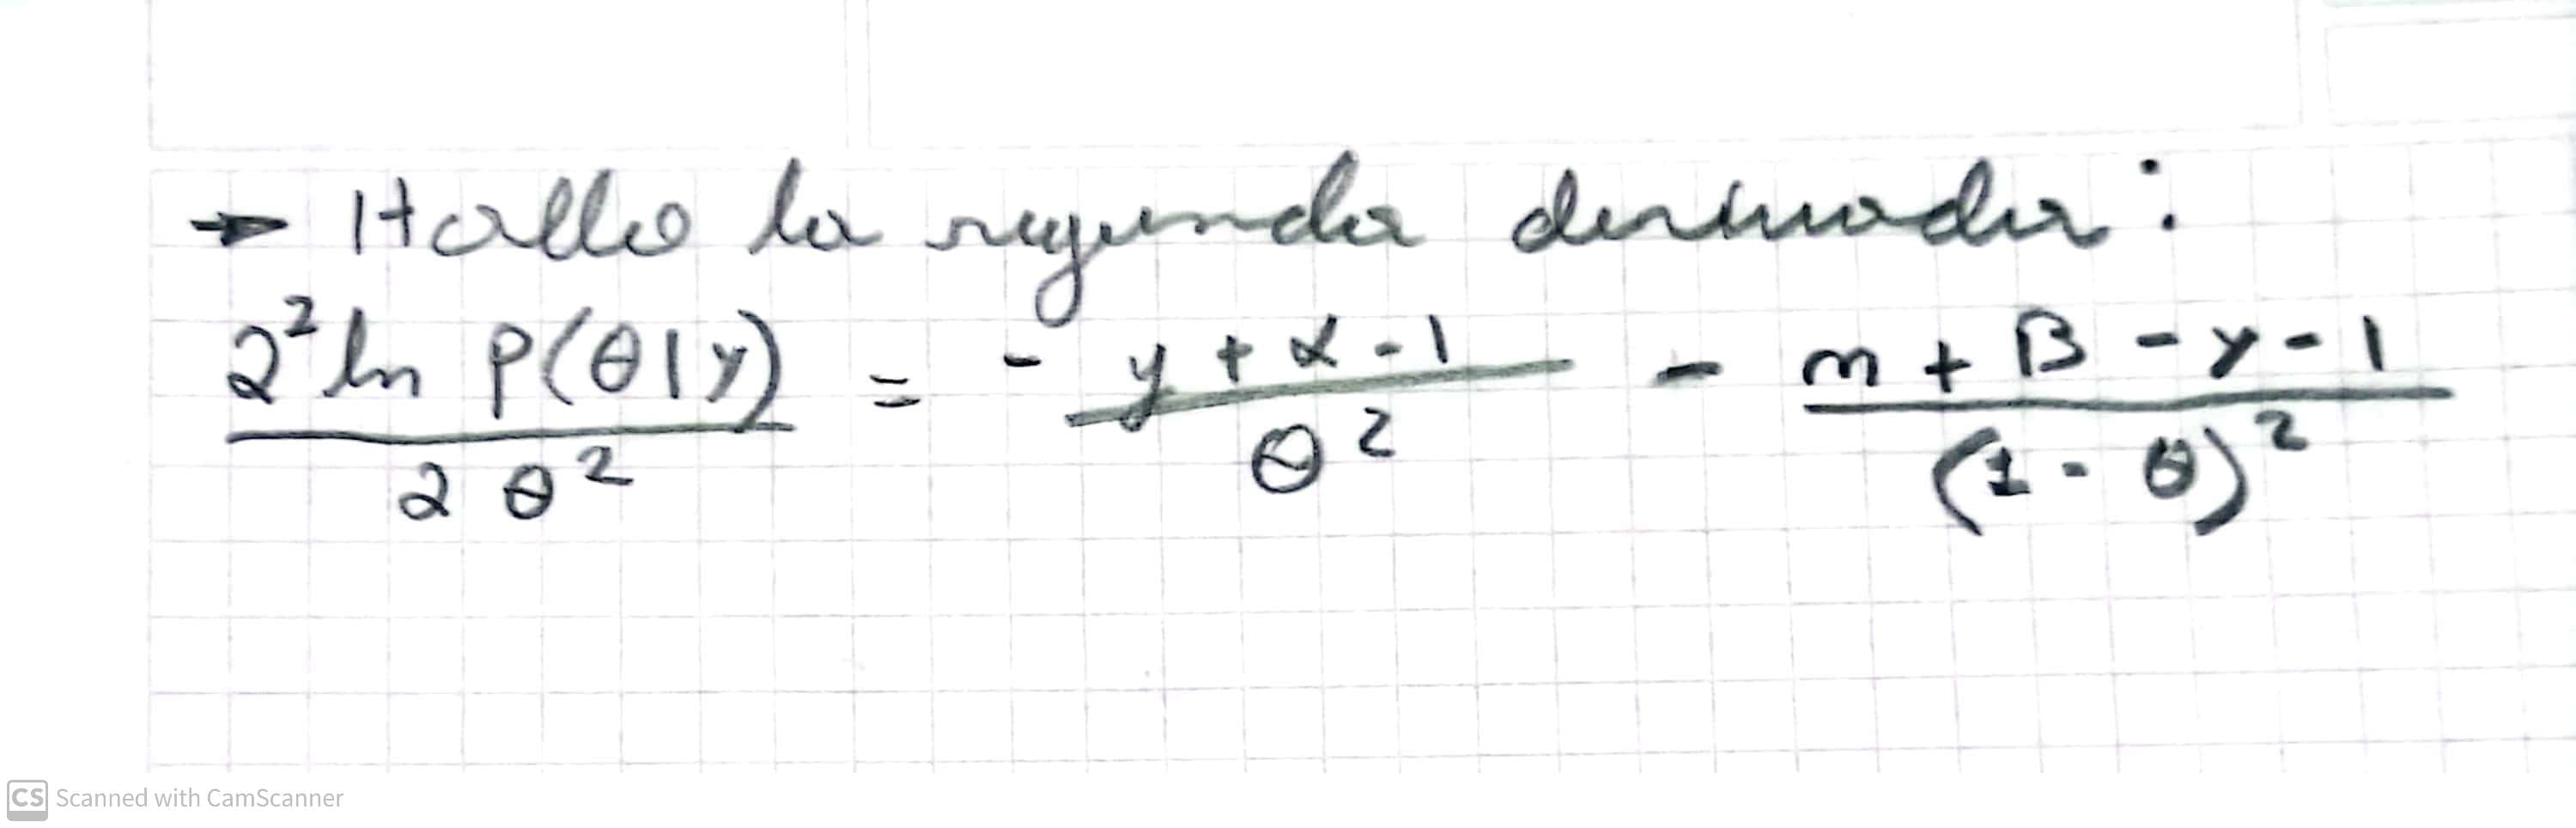 → Hallo la segunda derivada:
∂² ln P(θ|y) / ∂θ² = - y + α - 1 / θ² - n + β - y - 1 / (1 - θ)²
CS Scanned with CamScanner